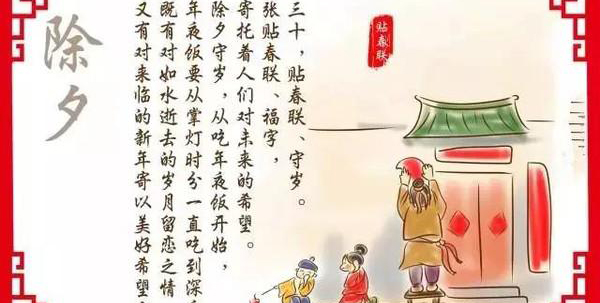 除夕
贴春联
三十，贴春联、守岁。
张贴春联、福字，
寄托着人们对未来的希望。
除夕守岁，从吃年夜饭开始，
年夜饭要从掌灯时分一直吃到深
既有对如水逝去的岁月留恋之情
又有对来临的新年寄以美好希望